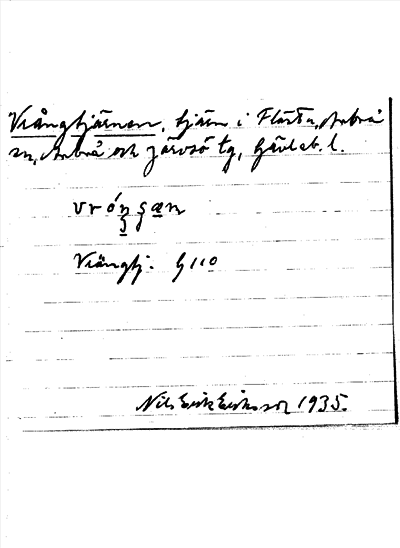 Vrångtjärnen, tjärn i Flästa, Arbrå
sn, Arbrå och Järvsö tg, Gävleb. l.
vróŋgan
Vrångtj. G 110
Nils Erik Eriksson 1935.